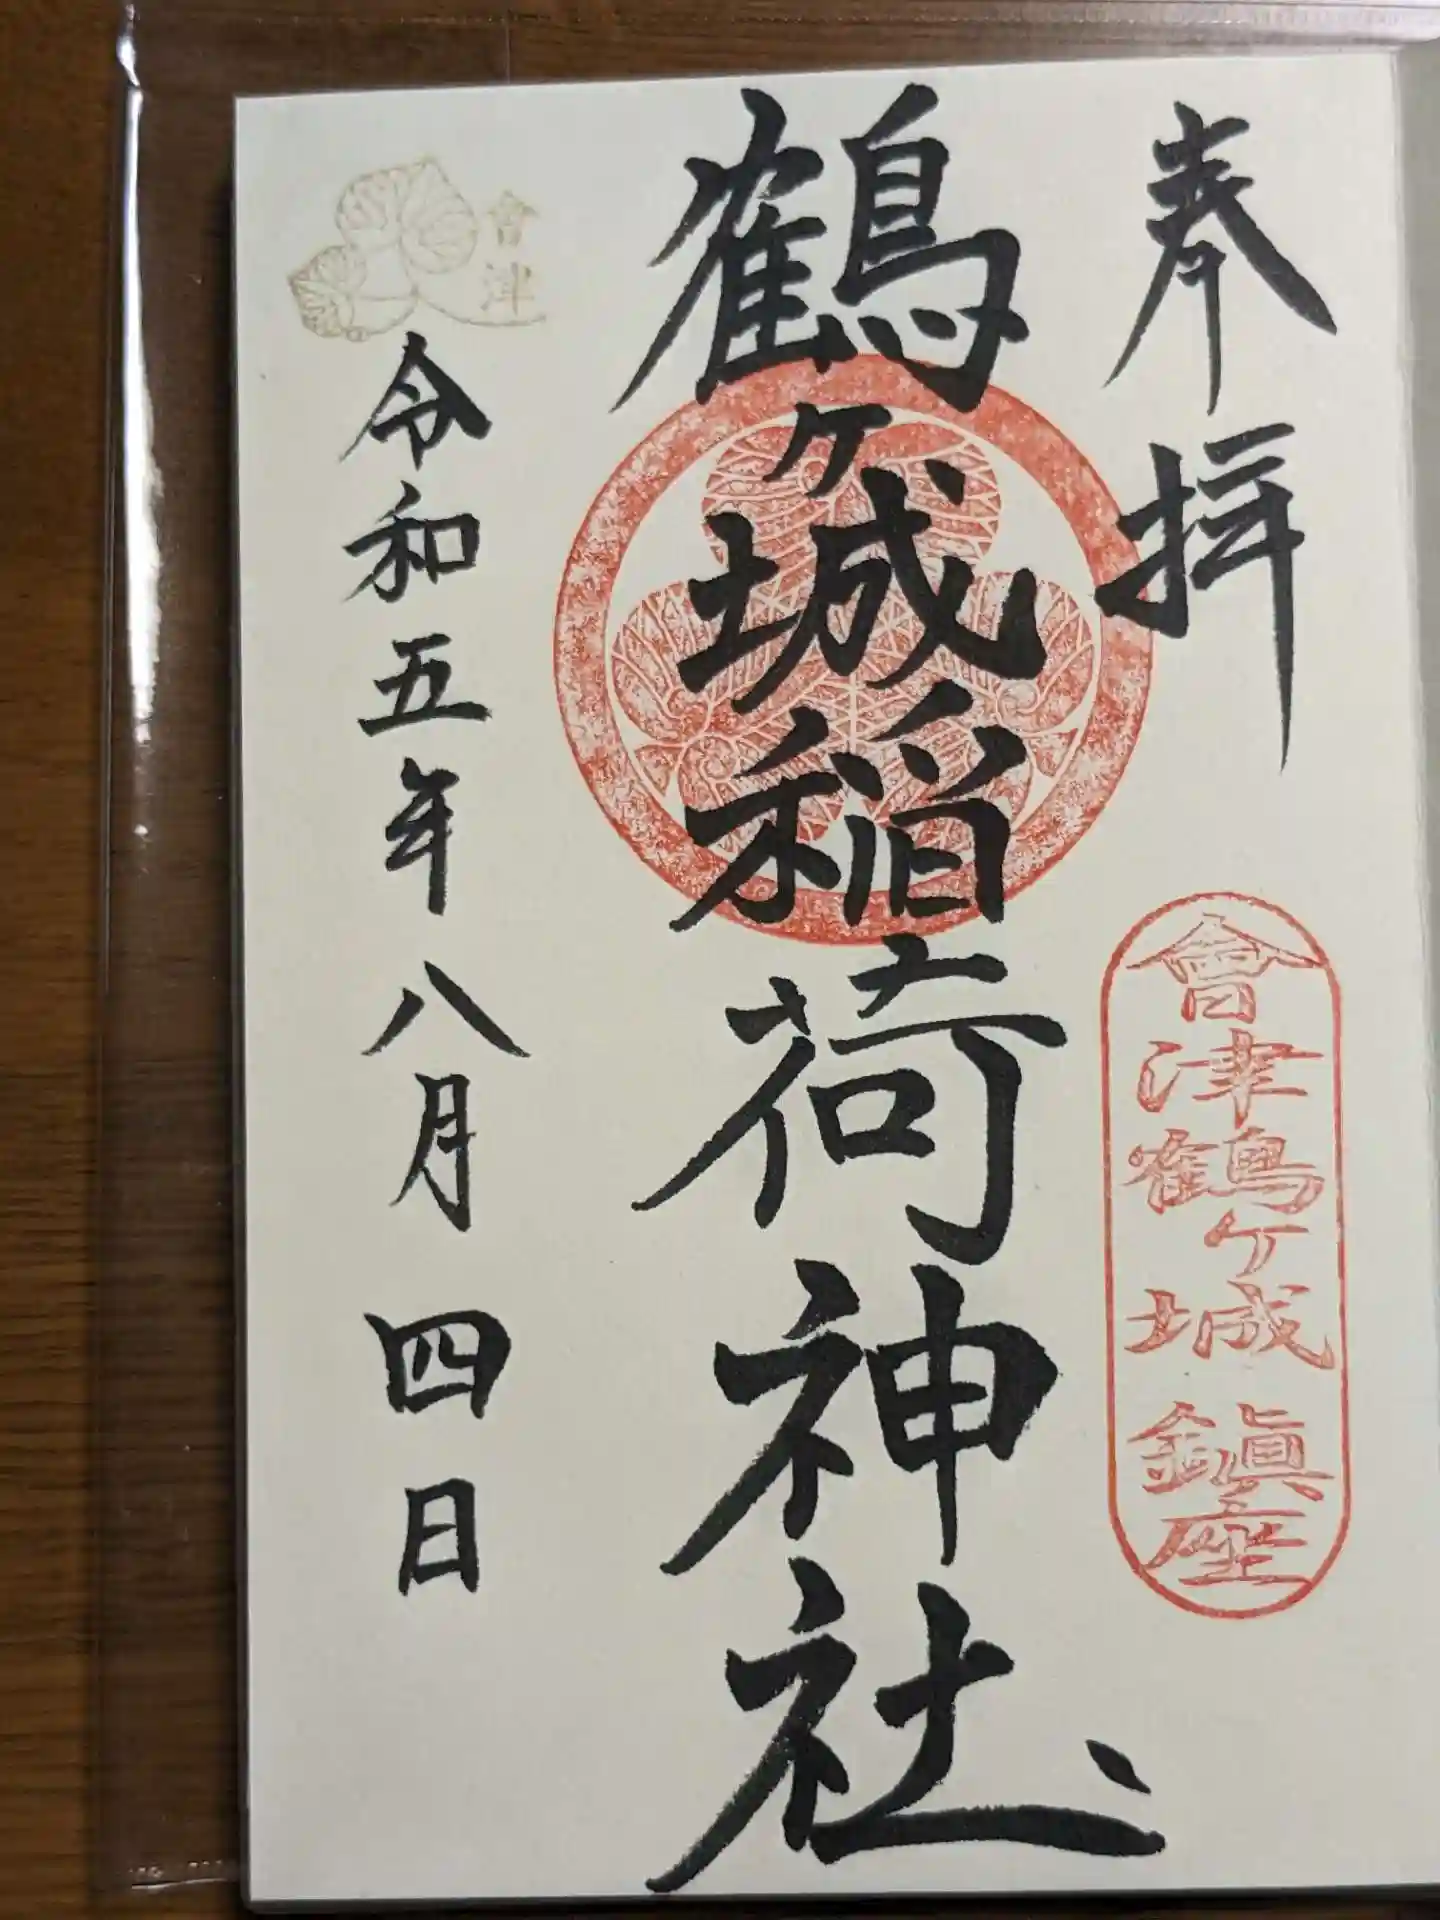 奉拝
會津鶴ケ城鎮座
鶴ケ城稲荷神社
會津
令和五年八月四日